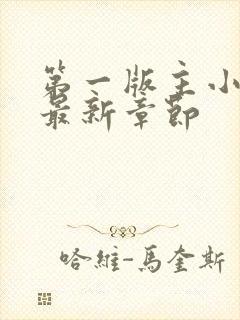 第一版主小
最新章節
哈維-馬奎斯